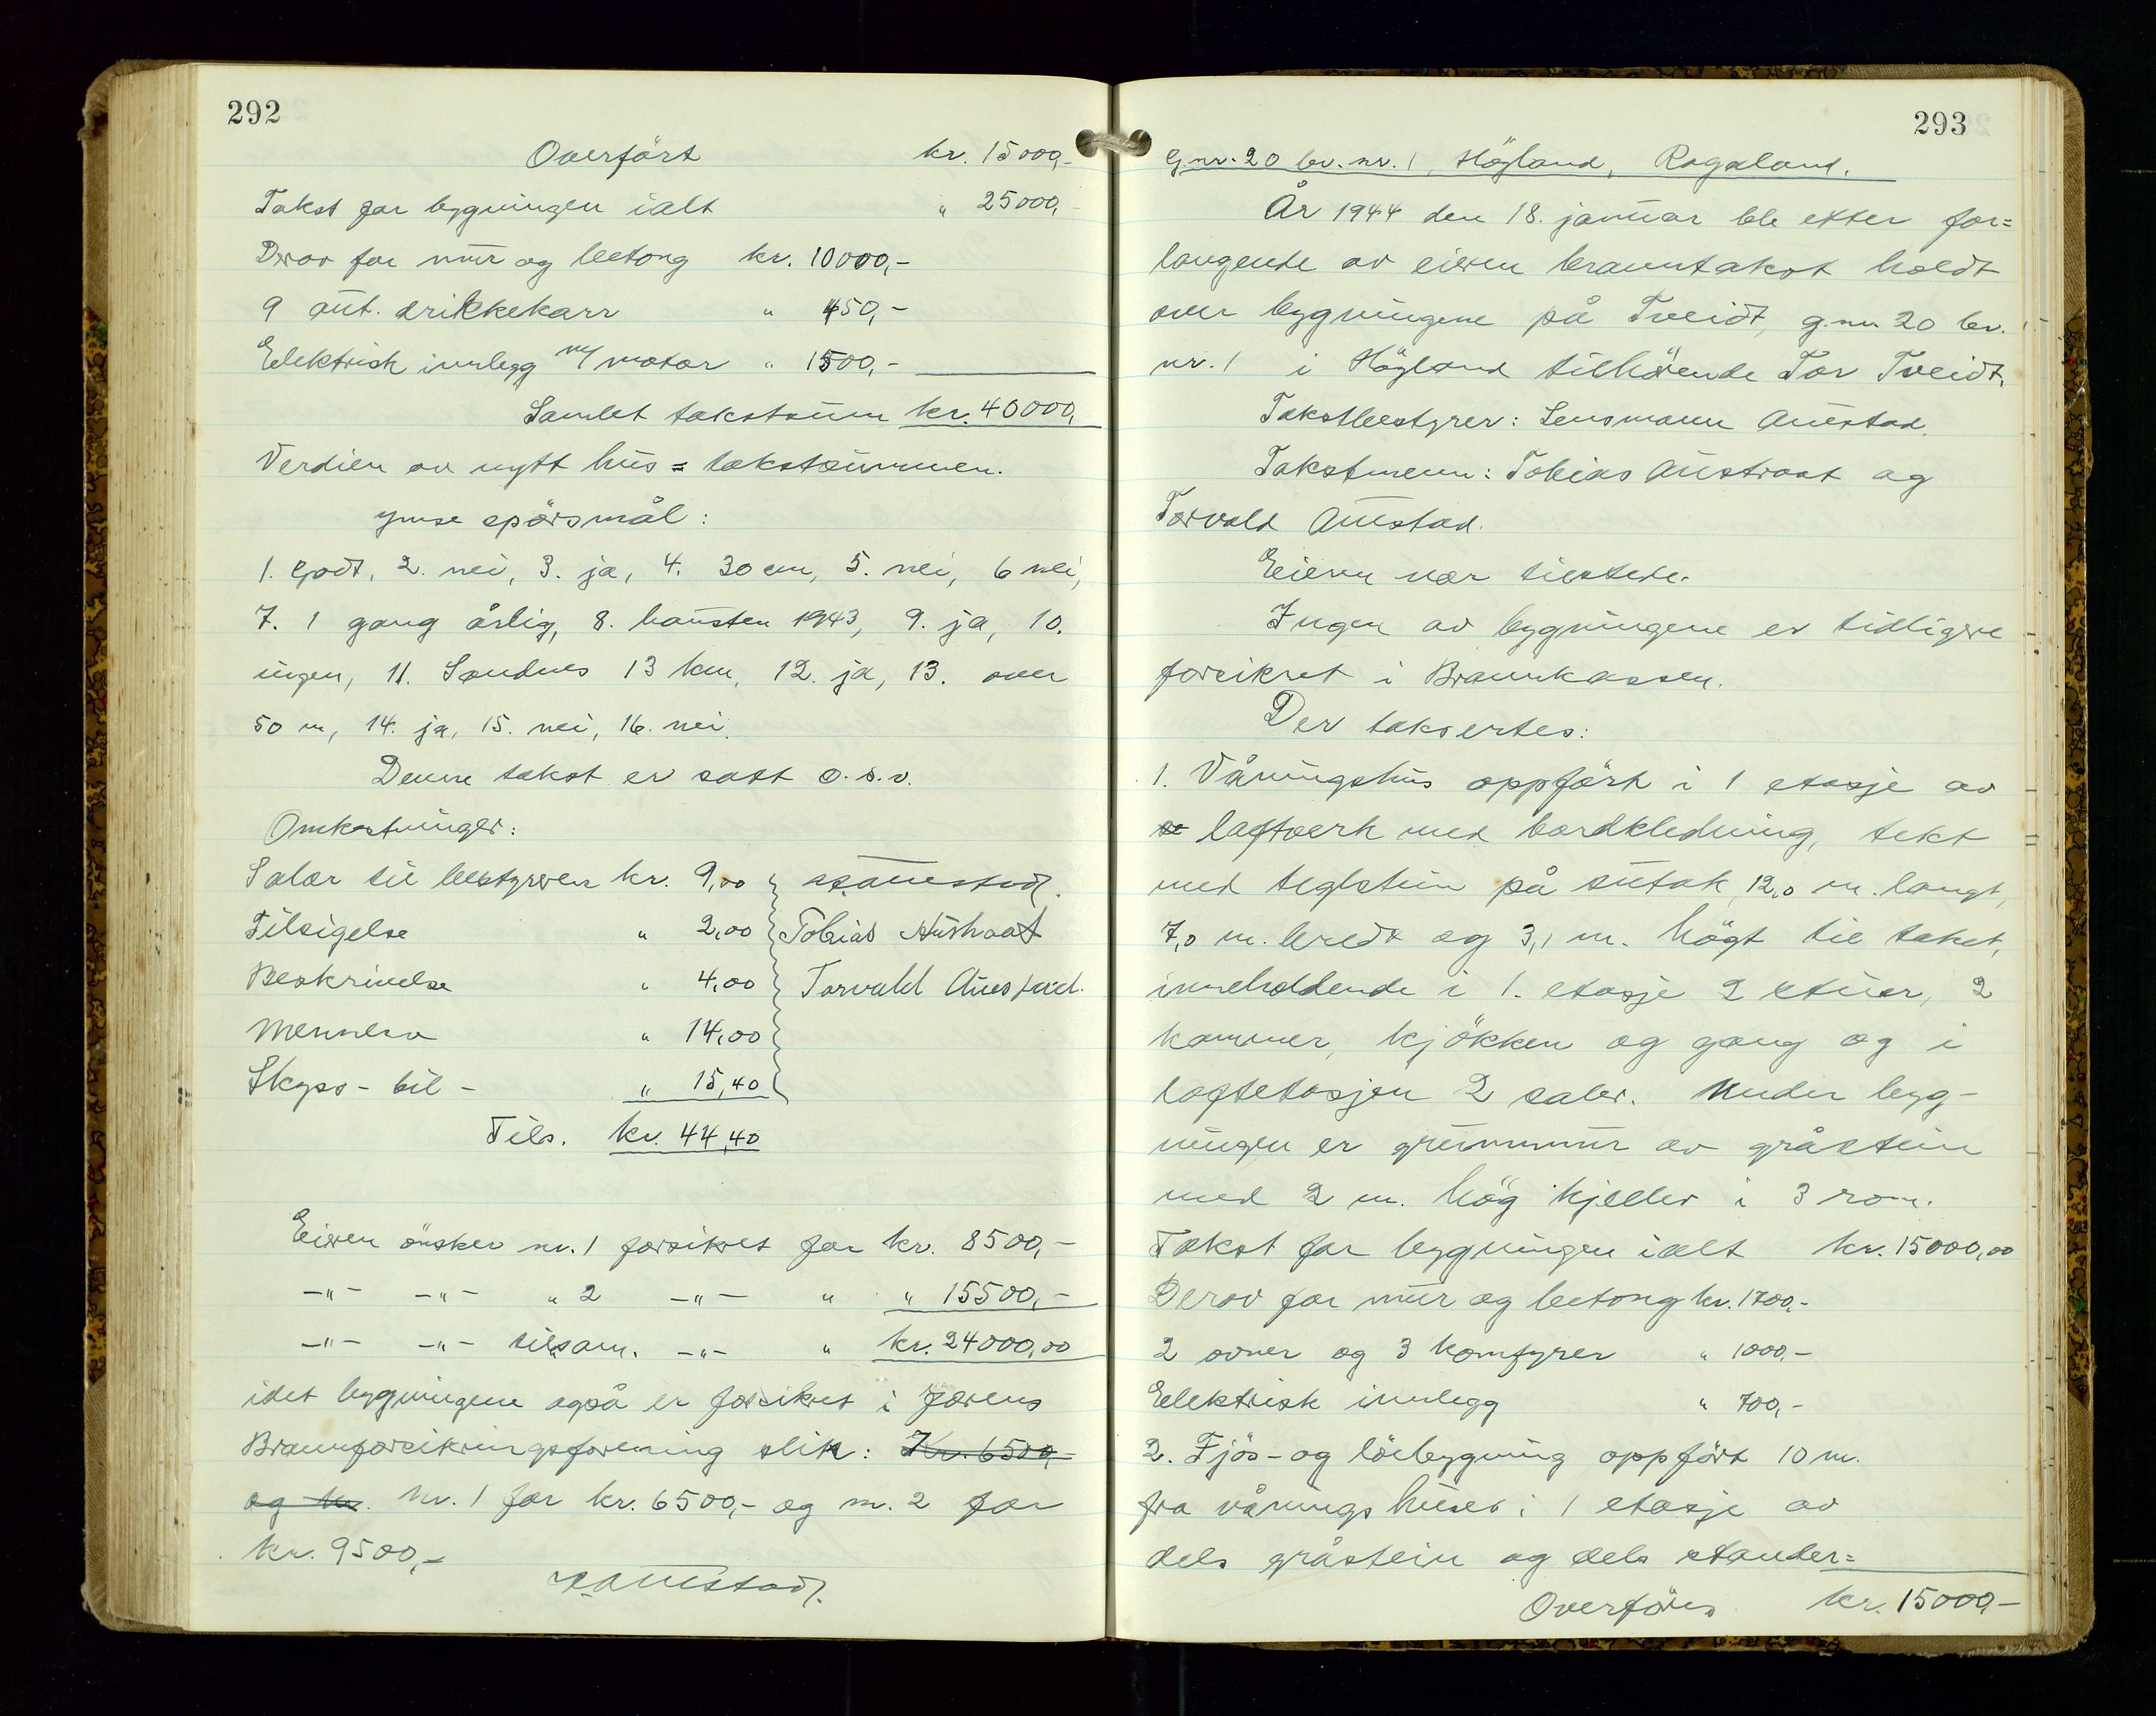 292
Overfört kr. 15000,-
Takst for bygningen ialt " 25000,-
Derav for mur og betong kr. 10000,-
9 aut. drikkekarr " 450,-
Elektrisk innlegg m/ motor " 1500,-
Samlet takstsum kr. 40000,
Verdien av nytt hus = takstsummen.
Ymse spörsmål:
1. Godt, 2. nei, 3. ja, 4. 30 cm, 5. nei, 6 nei,
7. 1 gang årlig, 8. hausten 1943, 9. ja, 10.
ingen, 11. Sandnes 13 km, 12. ja, 13. over
50 m, 14. ja, 15. nei, 16. nei.
Denne takst er satt o.s.v.
Omkostninger:
Salær til bestyreren kr. 9,00
Tilsigelse " 2,00 Tobias Austraat
Beskrivelse " 4,00 Torvald Aurstad.
Mennene " 14,00
Skyss - bil - " 15,40
Tils. kr. 44,40
Eieren önsker nr. 1 forsikret for kr. 8500,-
-"- -"- " 2 -"- " " 15500,-
-"- -"- tilsam. -"- " kr. 24000,00
idet bygningene også er forsikret i Jærens
Brannforsikringsforening slik: Kr. 6500,-
og kr. nr. 1 for kr. 6500,- og nr. 2 for
kr. 9500,-
293
G.nr. 20 br. nr. 1, Högland, Rogaland.
År 1944 den 18. januar ble etter for=
langende av eieren branntakst holdt
over bygningene på Tveidt, g.nr. 20 br.
nr. 1 i Högland tilhörende Tor Tveidt.
Takstbestyrer: Lensmann Aurstad.
Takstmenn: Tobias Austraat og
Torvald Aurstad.
Eieren var tilstede.
Ingen av bygningene er tidligere
forsikret i Brannkassen.
Der taksertes:
1. Våningshus oppfört i 1 etasje av
laftverk med bordkledning, tekt
med teglstein på sutak, 12,0 m. langt,
7,0 m. bredt og 3,1 m. högt til taket,
inneholdende i 1. etasje 2 stuer, 2
kammer, kjökken og gang og i
loftetasjen 2 saler. Under byg-
ningen er grunnmur av gråstein
med 2 m. hög kjeller i 3 rom.
Takst for bygningen ialt kr. 15000,00
Derav for mur og betong kr. 1700,-
2 ovner og 3 komfyrer " 1000,-
Elektrisk innlegg " 700,-
2. Fjös- og löebygning oppfört 10 m.
fra våningshuset i 1 etasje av
dels gråstein og dels stender=
Overföres kr. 15000,-